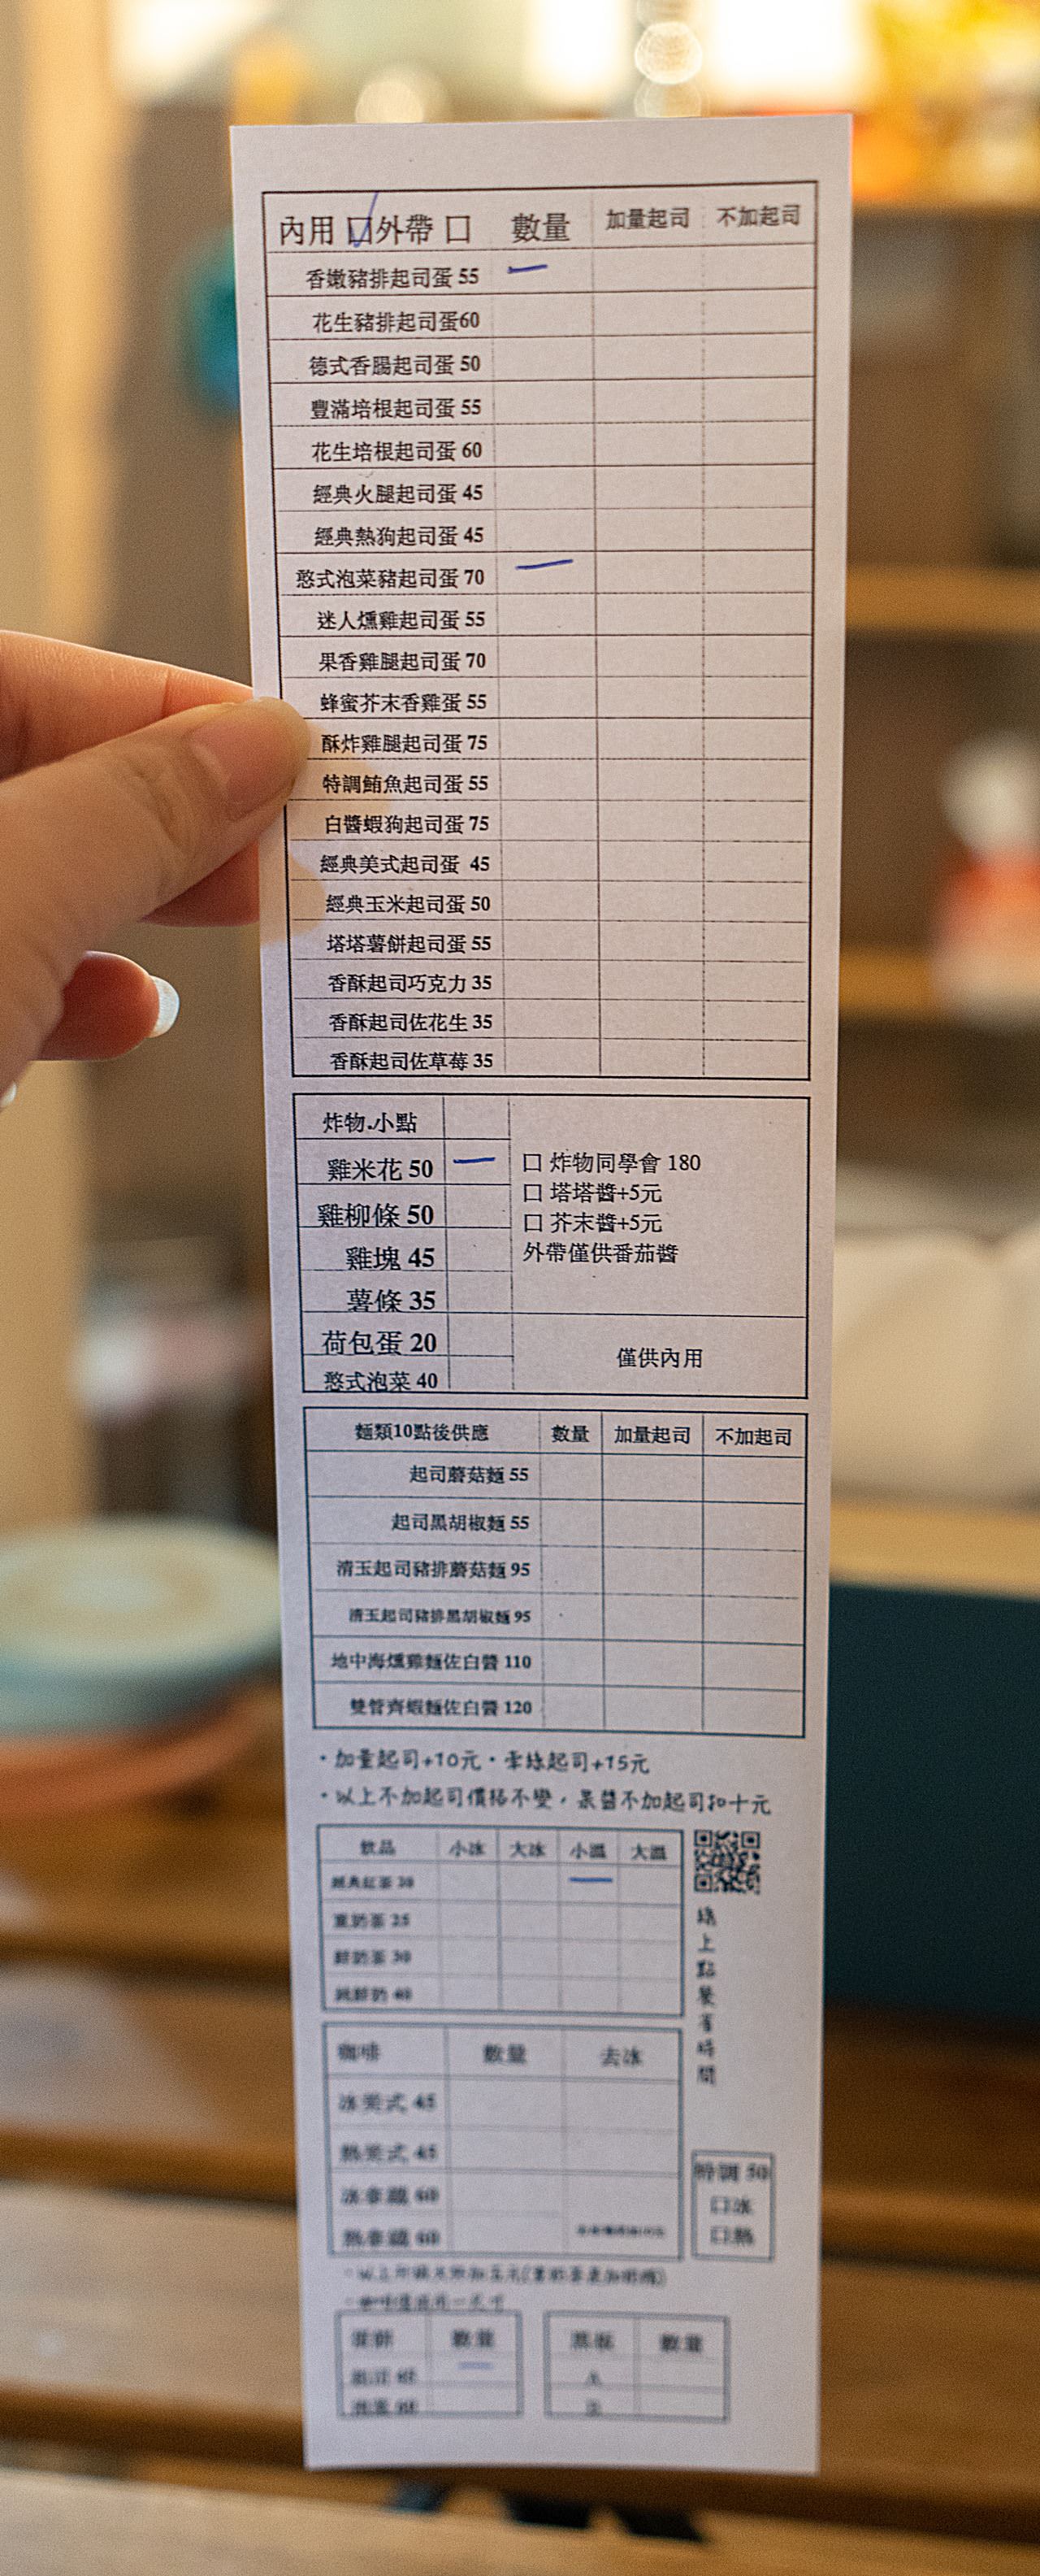 內用 口外帶 口 數量 加量起司 不加起司
香嫩豬排起司蛋 55 一
花生豬排起司蛋60
德式香腸起司蛋 50
豐滿培根起司蛋 55
花生培根起司蛋 60
經典火腿起司蛋 45
經典熱狗起司蛋 45
憨式泡菜豬起司蛋 70 一
迷人燻雞起司蛋 55
果香雞腿起司蛋 70
蜂蜜芥末香雞蛋 55
酥炸雞腿起司蛋 75
特調鮪魚起司蛋 55
白醬蝦狗起司蛋 75
經典美式起司蛋 45
經典玉米起司蛋 50
塔塔薯餅起司蛋 55
香酥起司巧克力 35
香酥起司佐花生 35
香酥起司佐草莓 35
炸物.小點
雞米花 50 一
雞柳條 50
雞塊 45
薯條 35
荷包蛋 20
憨式泡菜 40
口 炸物同學會 180
口 塔塔醬+5元
口 芥末醬+5元
外帶僅供番茄醬
僅供內用
麵類10點後供應 數量 加量起司 不加起司
起司蘑菇麵 55
起司黑胡椒麵 55
清玉起司豬排蘑菇麵 95
清玉起司豬排黑胡椒麵 95
地中海燻雞麵佐白醬 110
雙管齊蝦麵佐白醬 120
・加量起司+10元・牽絲起司+15元
・以上不加起司價格不變，果醬不加起司扣十元
飲品 小冰 大冰 小溫 大溫
經典紅茶 20 一
鮮奶茶 30
純鮮奶 40
線上點餐省時間
咖啡 數量 去冰
冰美式 45
熱美式 45
冰拿鐵 60
熱拿鐵 60
特調 50
口冰
口熱
蛋餅 數量
一
黑板 數量
A